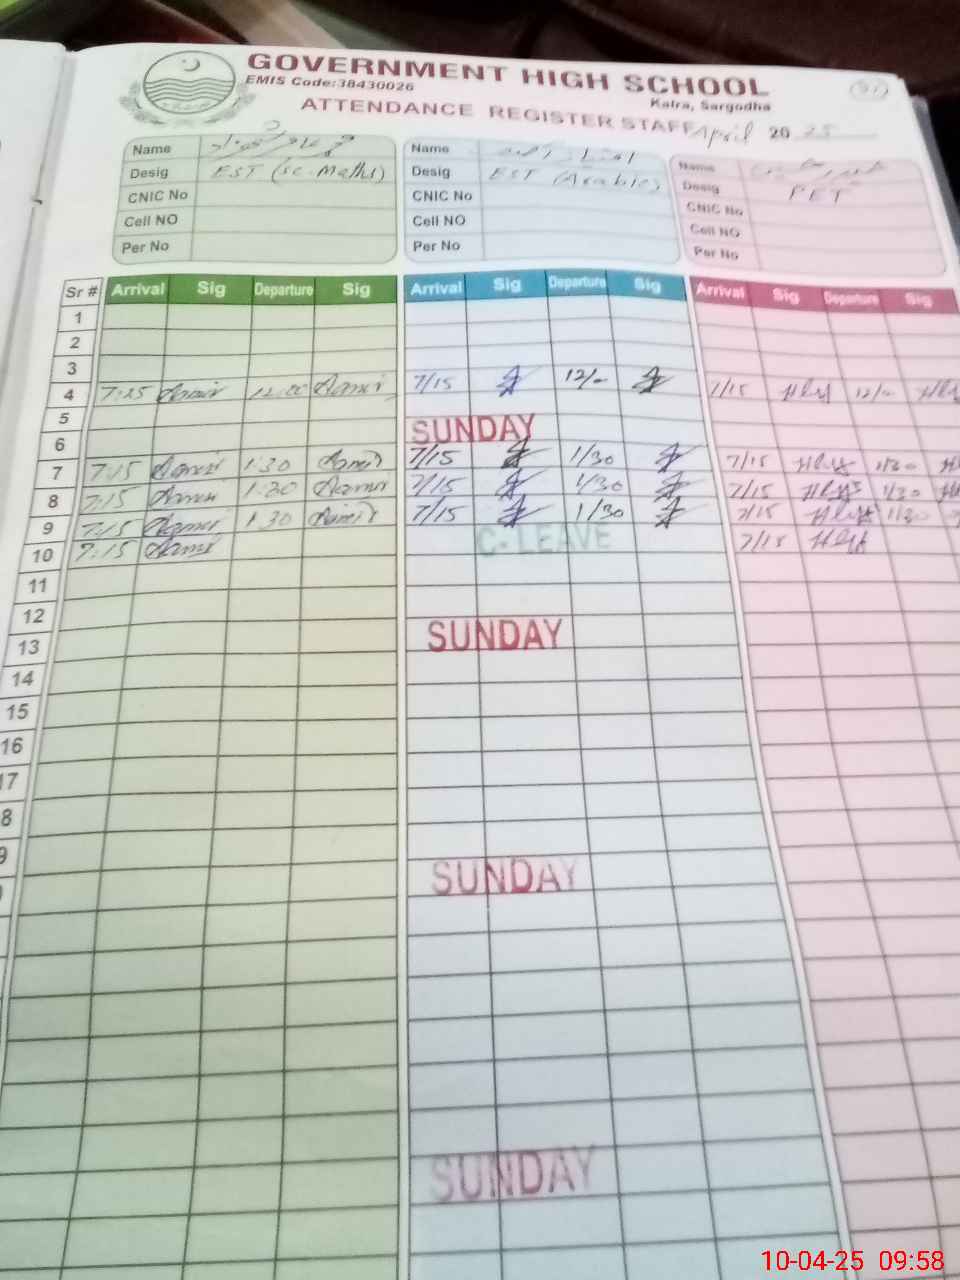 GOVERNMENT HIGH SCHOOL
EMIS Code:38430026
Kalra, Sargodha
ATTENDANCE REGISTER STAFF April 2025
Name Name Name
Desig EST (Sc-Maths) Desig EST (Arabic) Desig PET
CNIC No CNIC No CNIC No
Cell NO Cell NO Cell NO
Per No Per No Per No
Sr # Arrival Sig Departure Sig Arrival Sig Departure Sig Arrival Sig Departure Sig
1
2
3
4 7:15 Aamir 12:00 Aamir 7/15 12/- 7/15 12/-
5
6 SUNDAY
7 7:15 Aamir 1:30 Aamir 7/15 1/30 7/15 1/30
8 7:15 Aamir 1:30 Aamir 7/15 1/30 7/15 1/30
9 7:15 Aamir 1:30 Aamir 7/15 1/30 7/15 1/30
10 7:15 Aamir C-LEAVE 7/15
11
12
13 SUNDAY
14
15
16
17
8
9
SUNDAY
SUNDAY
10-04-25 09:58